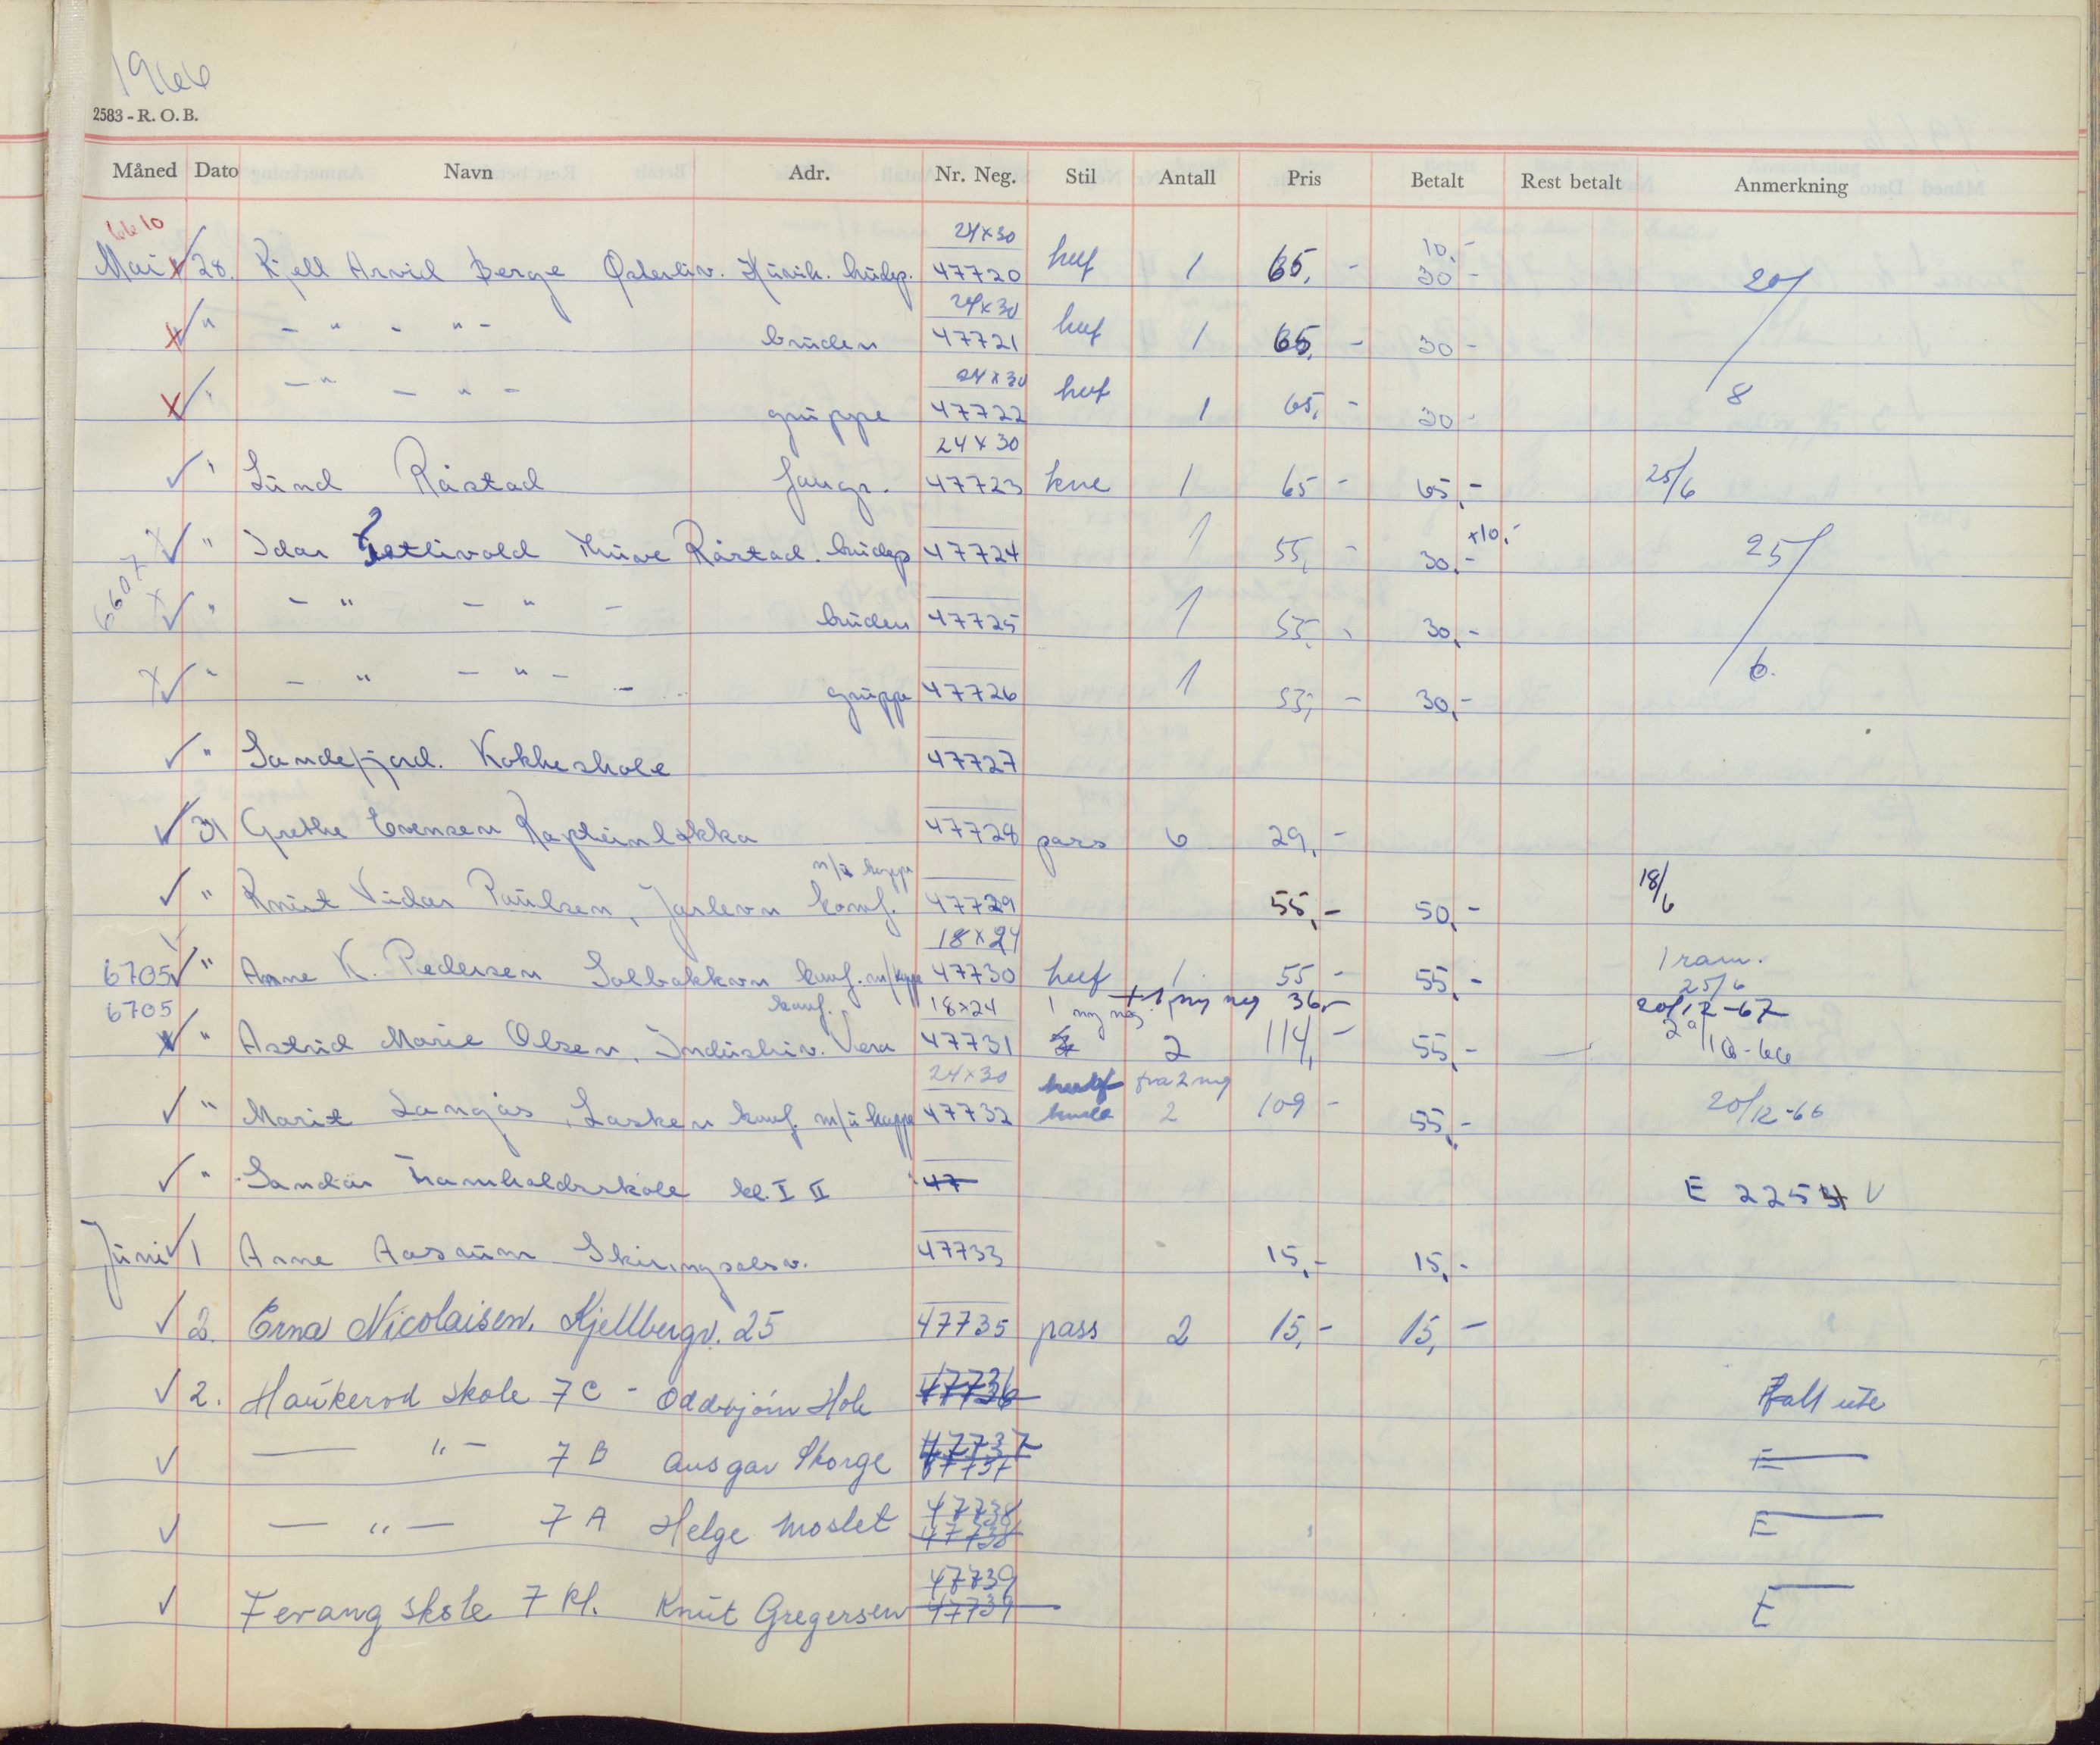 1966
2583 - R. O. B.
Måned Dato Navn Adr. Nr. Neg. Stil Antall Pris Betalt Rest betalt Anmerkning
6610
24x30 10,-
Mai 28. Kjell Arvid Berge Østerøiv. brudep. 47720 huf 1 65,- 30- 20/
24x30
" - " - " - bruden 47721 huf 1 65,- 30-
24x30
" - " - " - gruppe 47722 huf 1 65,- 30- 8
24x30
" Lund Råstad 47723 kne 1 65- 65,- 25/6
+10,-
" Idar Råstad. brudep 47724 1 55,- 30,- 25/
6607
" - " - " - bruden 47725 1 55,- 30,-
" - " - " - - gruppe 47726 1 55,- 30,- 6.
" Sandefjord. Kokkeskole 47727
31 Grethe Evensen Kapteinløkka 47728 pass 6 29,-
m/u kappe
" Knut Vidar Paulsen, Jarlevn konf. 47729 55,- 50,- 18/6
18x24
1 ram.
6705 " Anne K. Pedersen Solbakkvn konf. m/kappe 47730 huf 1 55- 55,- 25/6
6705 konf. 18x24 1 ny neg + 1 ny neg 36,- 20/12-67
" Astrid Marie Olsen, Industriv. Vera 47731 2 114,- 55,- -
24x30 fra 2 neg
" Marit Langås, Lasken konf. m/u kappe 47732 2 109- 55,- 20/12-66
" Sandar Framhaldsskole kl. I II 47 E 2254 V
Juni 1 Anne Aasrum Skiringsalsv. 47733 15,- 15,-
2. Erna Nicolaisen. Kjellbergv. 25 47735 pass 2 15,- 15,-
2. Haukerød skole 7C - Oddbjørn Hole 47736 Falt ute
- " - 7 B Ansgar Skorge 47737 E
47737
- " - 7 A Helge Moslet 47738 E
47738
47739
Fevang skole 7 kl. Knut Gregersen 47739 E